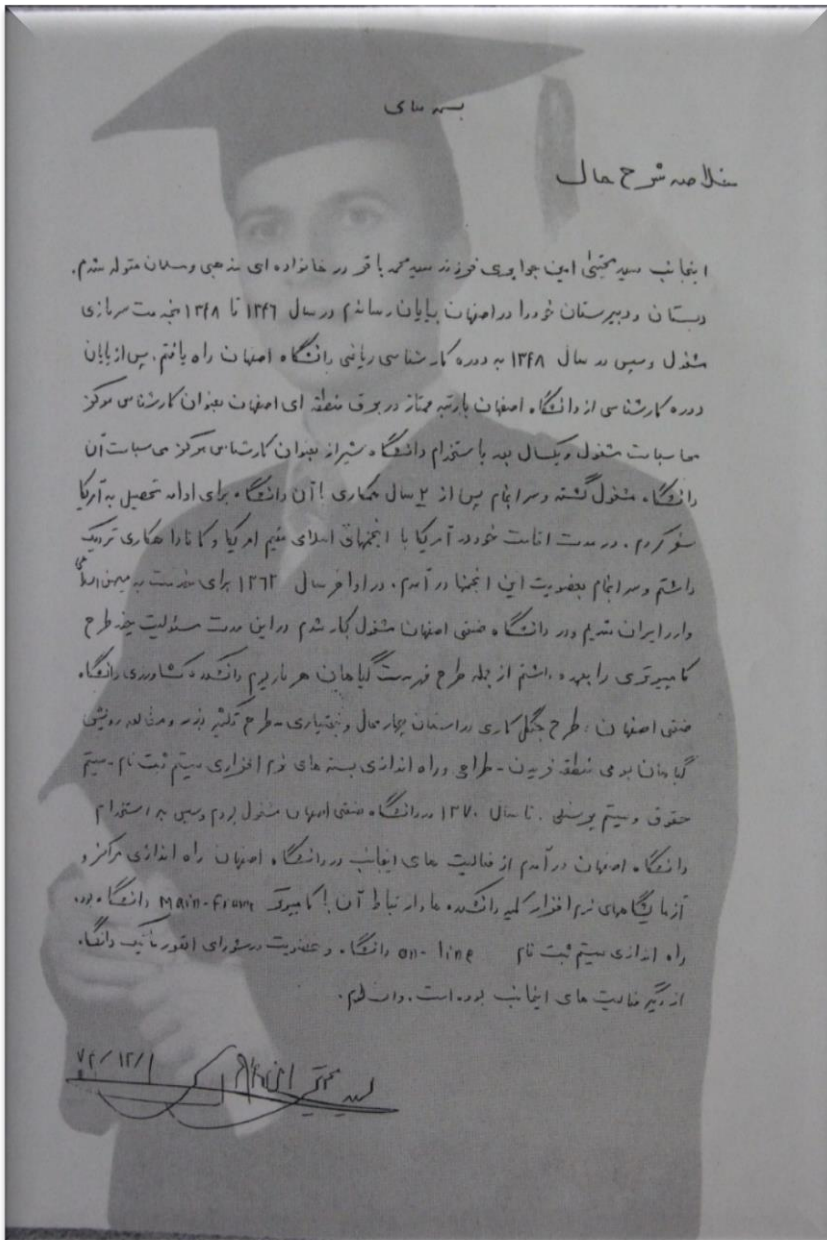 بسمه تعالی
خلاصه شرح حال
اینجانب سید مجتبی امین جواهری فرزند سید محمد باقر در خانواده ای مذهبی و مسلمان متولد شدم.
دبستان و دبیرستان خود را در اصفهان بپایان رساندم در سال ۱۳۴۶ تا ۱۳۴۸ بخدمت سربازی
مشغول و سپس در سال ۱۳۴۸ به دوره کارشناسی ریاضی دانشگاه اصفهان راه یافتم. پس از پایان
دوره کارشناسی از دانشگاه اصفهان با رتبه ممتاز در برق منطقه ای اصفهان بعنوان کارشناس مرکز
محاسبات مشغول و یکسال بعد با استخدام دانشگاه شیراز بعنوان کارشناس مرکز محاسبات آن
دانشگاه مشغول گشته و سرانجام پس از ۲ سال همکاری با آن دانشگاه برای ادامه تحصیل به آمریکا
سفر کردم. در مدت اقامت خود در آمریکا با انجمنهای اسلامی مقیم امریکا و کانادا همکاری نزدیک
داشتم و سرانجام بعضویت این انجمنها در آمدم. در اواخر سال ۱۳۶۲ برای خدمت به میهن اسلامی
وارد ایران شدیم و در دانشگاه صنعتی اصفهان مشغول بکار شدم در این مدت مسئولیت چند طرح
کامپیوتری را بعهده داشتم از جمله طرح فهرست گیاهان هرباریوم دانشکده کشاورزی دانشگاه
صنعتی اصفهان، طرح جنگل کاری در استان چهارمحال و بختیاری - طرح تکثیر بذر و مطالعه رویشی
گیاهان بومی منطقه فریدن - طراحی و راه اندازی بسته های نرم افزاری سیستم ثبت نام - سیستم
حقوق و سیستم پرسنلی. تا سال ۱۳۷۰ در دانشگاه صنعتی اصفهان مشغول بودم و سپس به استخدام
دانشگاه اصفهان در آمدم از فعالیت های اینجانب در دانشگاه اصفهان راه اندازی مراکز و
آزمایشگاههای نرم افزار کلیه دانشکده ها و ارتباط آن با کامپیوتر Main-Fram دانشگاه بود.
راه اندازی سیستم ثبت نام on-line دانشگاه و عضویت در شورای انفورماتیک دانشگاه
از دیگر فعالیت های اینجانب بوده است.
سید مجتبی امین
۷۲/۱۲/۱